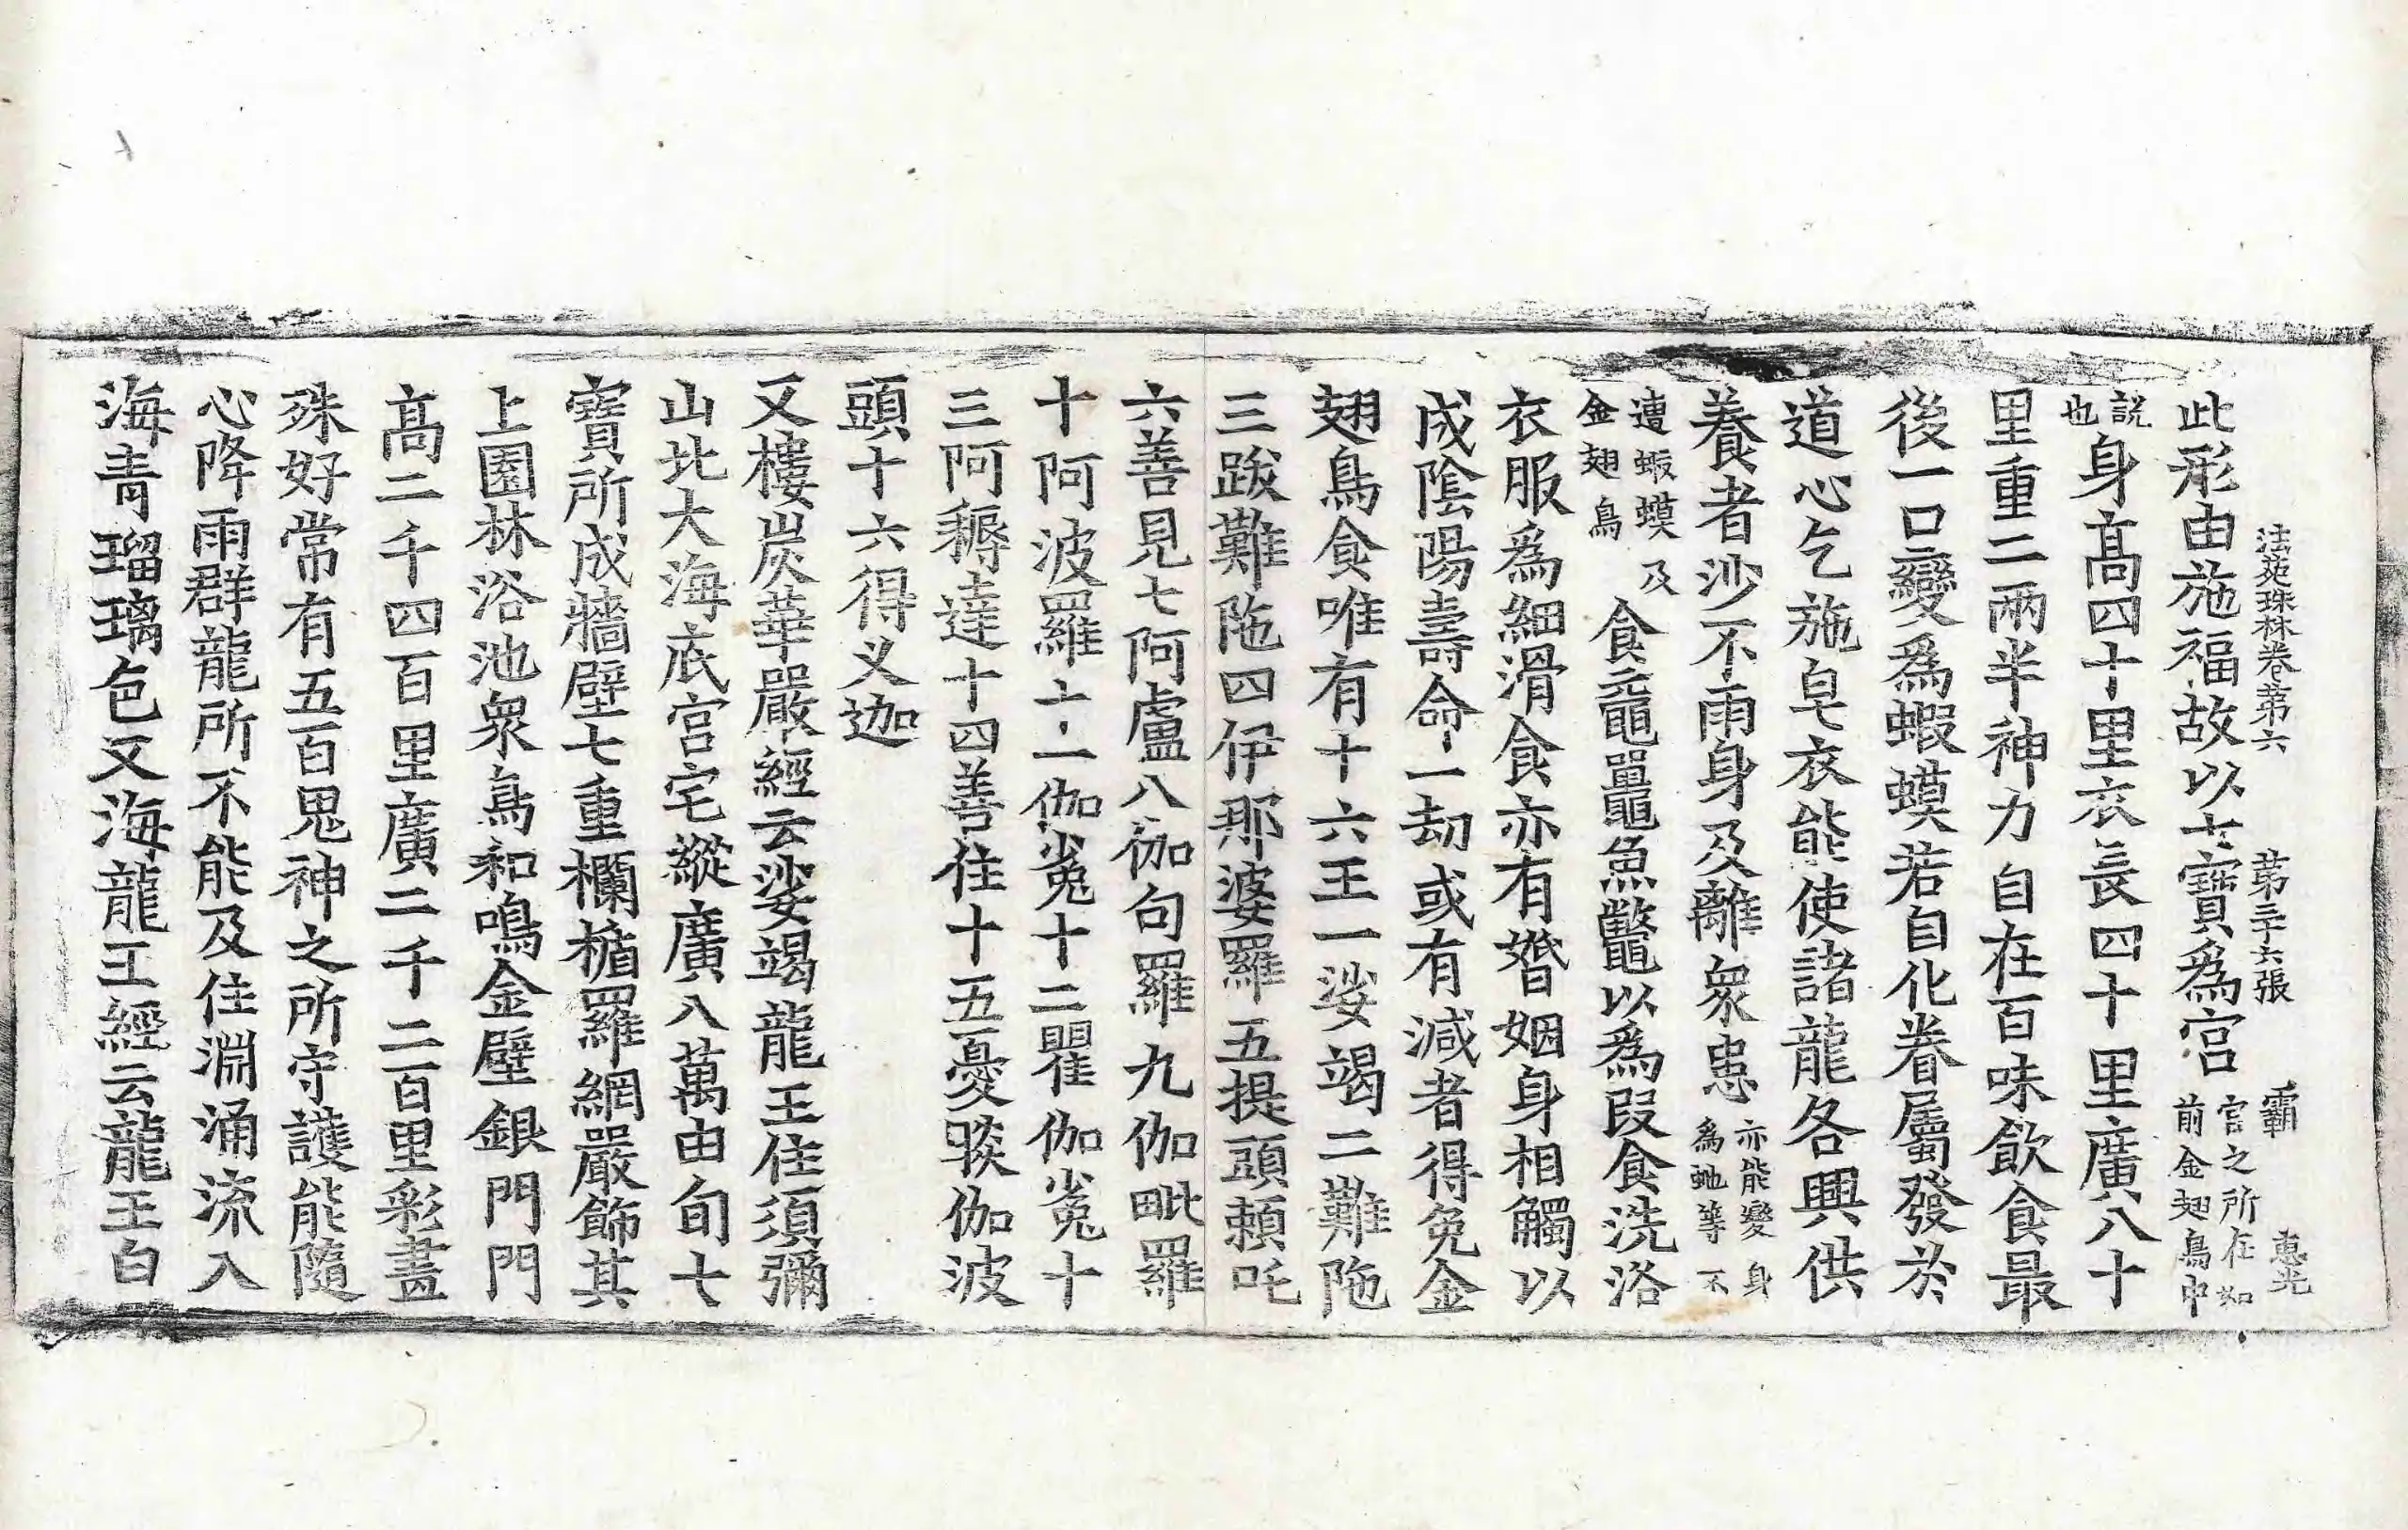 法苑珠林卷第六 第三十六張 霸 惠光
此形由施福故以七寶爲宮宮之所在如前金翅鳥中
說也身髙四十里衣長四十里廣八十
里重二兩半神力自在百味飮食最
後一口變爲蝦蟆若自化眷屬發於
道心乞施皂衣能使諸龍各興供
養者沙不雨身及離衆患亦能變身爲虵等不
遭蝦蟆及金翅鳥食黿鼉魚鼈以爲叚食洗浴
衣服爲細滑食亦有婚姻身相觸以
成陰陽壽命一劫或有減者得免金
翅鳥食唯有十六王一娑竭二難陁
三跋難陁四伊那婆羅五提頭賴吒
六善見七阿盧八伽句羅九伽毗羅
十阿波羅十一伽㝹十二瞿伽㝹十
三阿耨達十四善住十五憂睒伽波
頭十六得叉迦
又樓炭華嚴經云娑竭龍王住須彌
山北大海底宮宅縱廣八萬由旬七
寶所成牆壁七重欄楯羅網嚴飾其
上園林浴池衆鳥和鳴金壁銀門門
髙二千四百里廣二千二百里彩畫
殊好常有五百鬼神之所守護能隨
心降雨群龍所不能及住淵涌流入
海青瑠璃色又海龍王經云龍王白